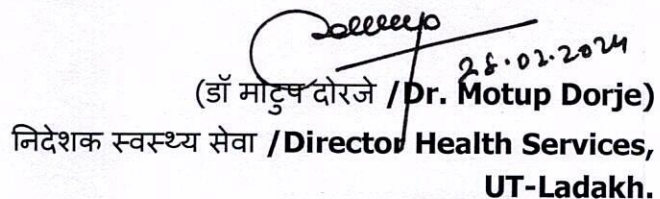 28.02.2024
(डॉ मोटुप दोरजे /Dr. Motup Dorje)
निदेशक स्वस्थ्य सेवा /Director Health Services,
UT-Ladakh.